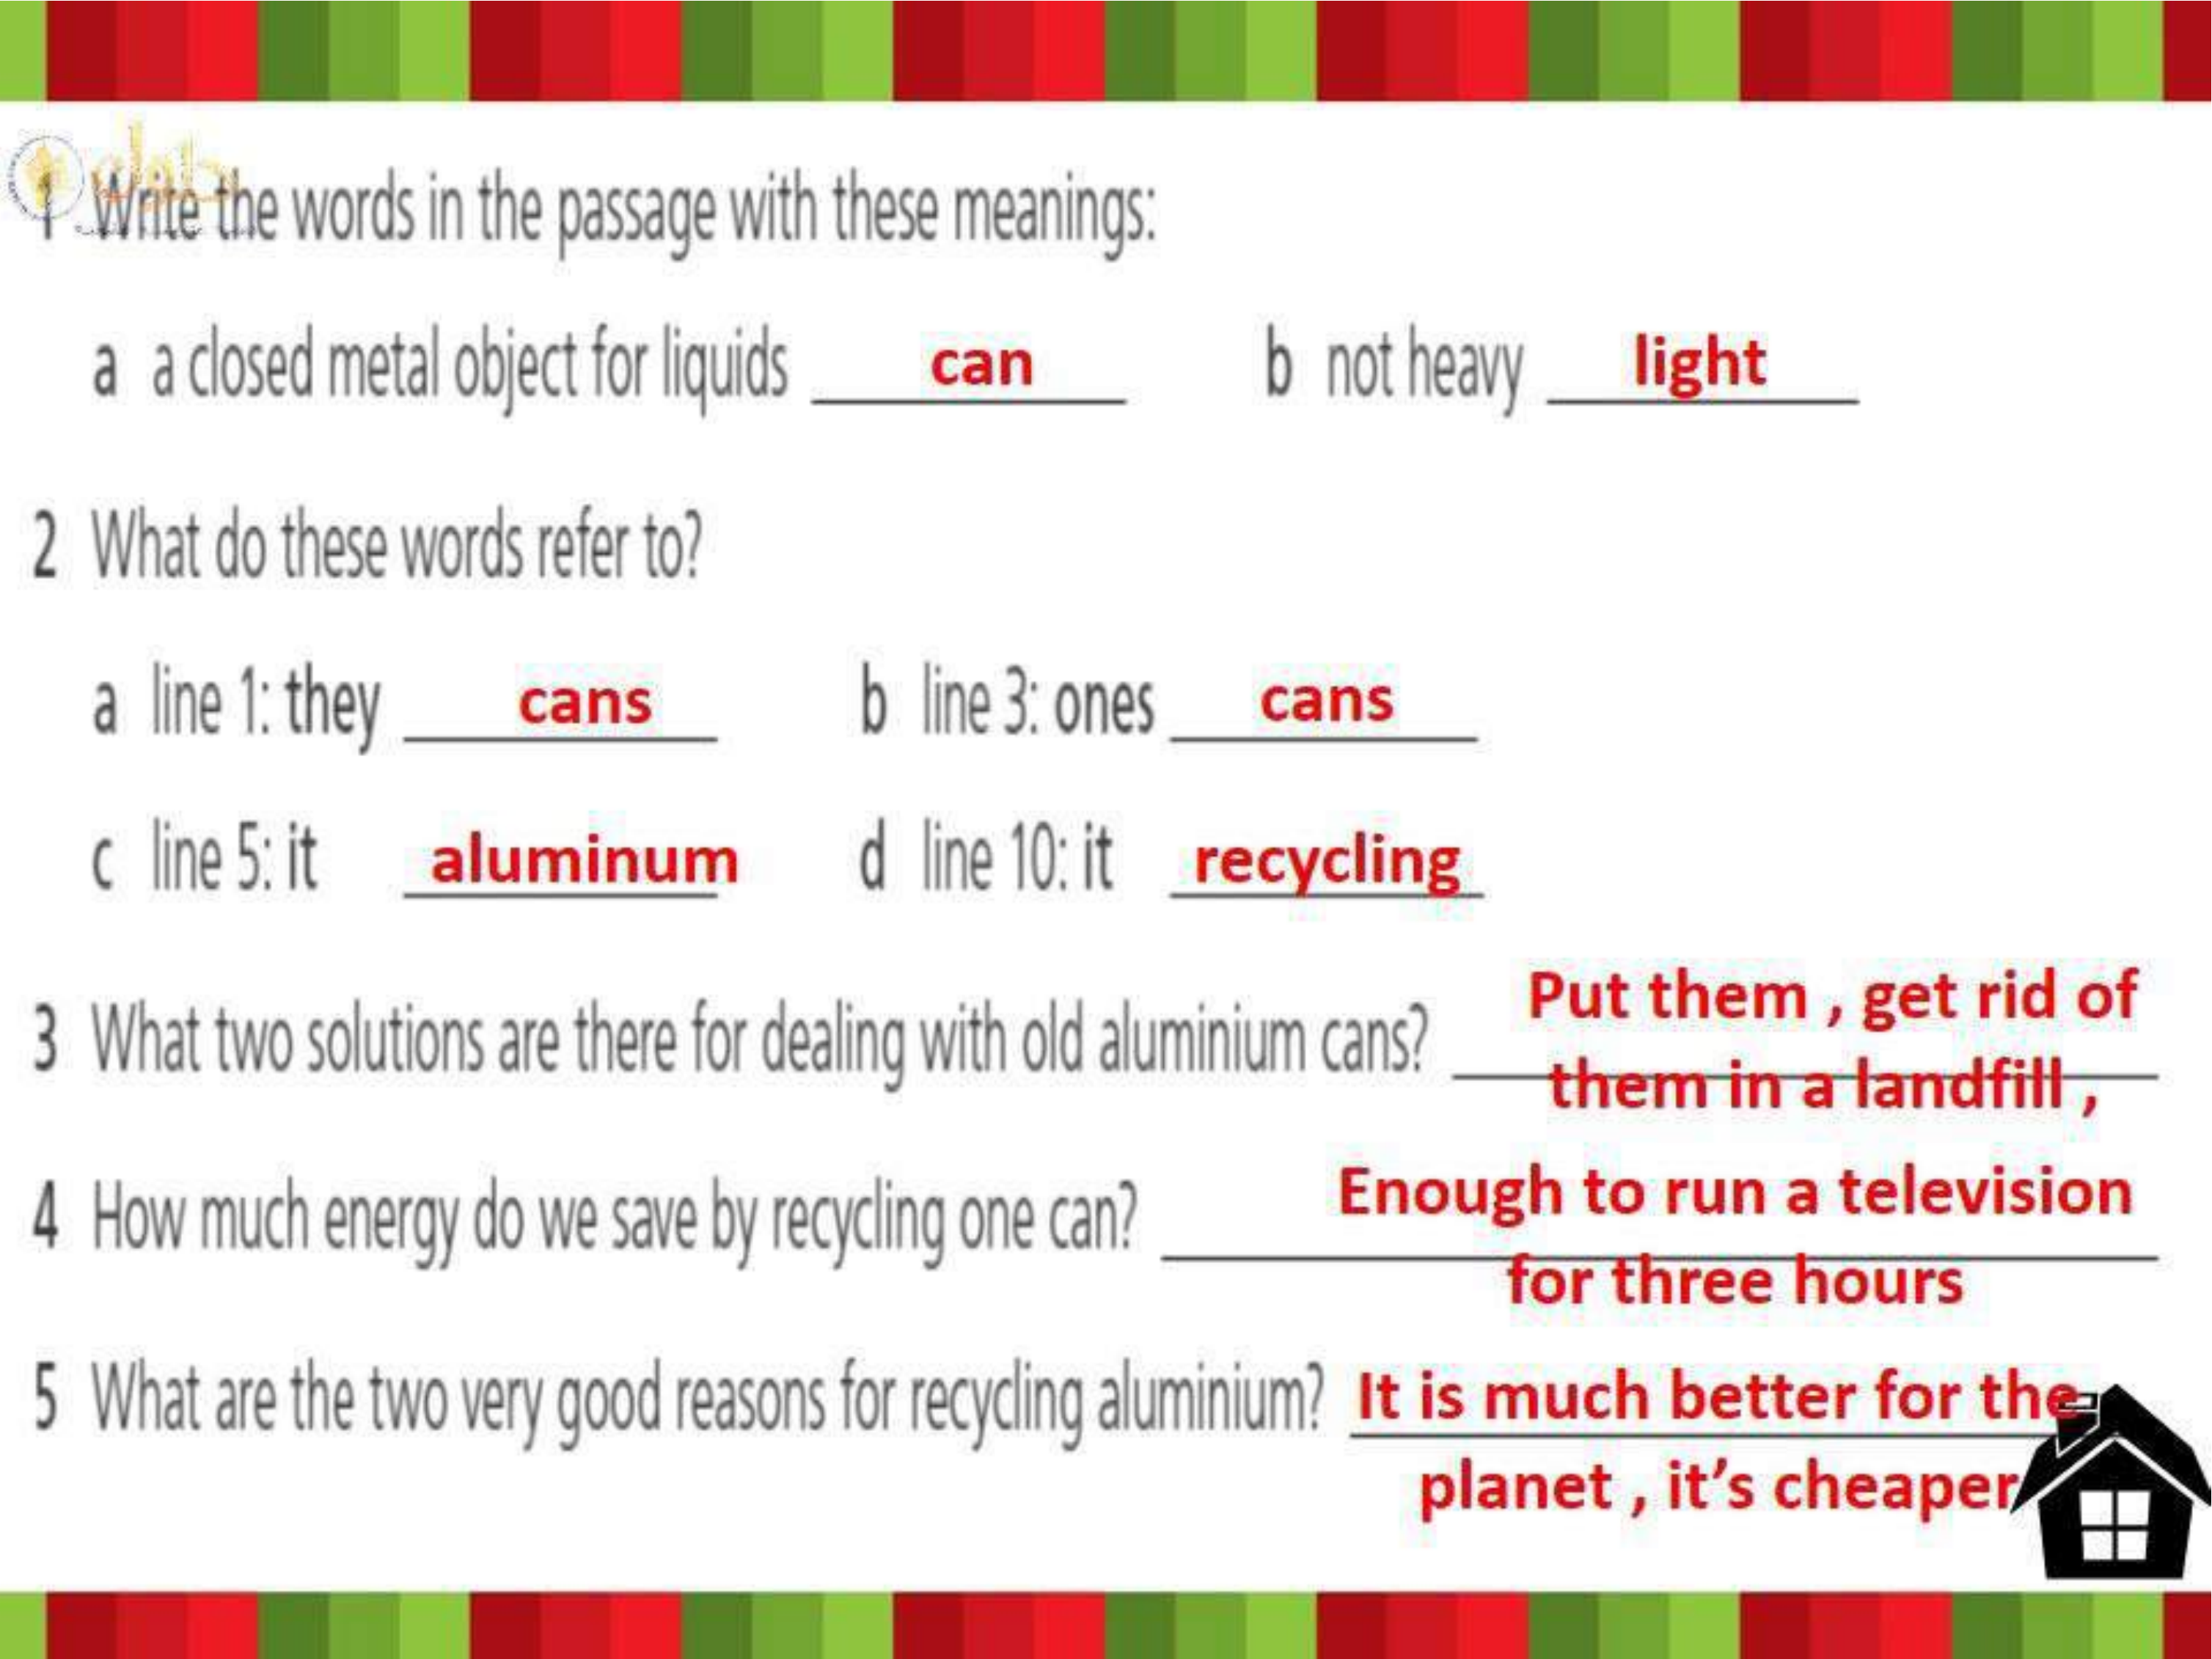 1 Write the words in the passage with these meanings:
a a closed metal object for liquids can b not heavy light
2 What do these words refer to?
a line 1: they cans b line 3: ones cans
c line 5: it aluminum d line 10: it recycling
3 What two solutions are there for dealing with old aluminium cans? Put them , get rid of
them in a landfill ,
4 How much energy do we save by recycling one can? Enough to run a television
for three hours
5 What are the two very good reasons for recycling aluminium? It is much better for the
planet , it's cheaper